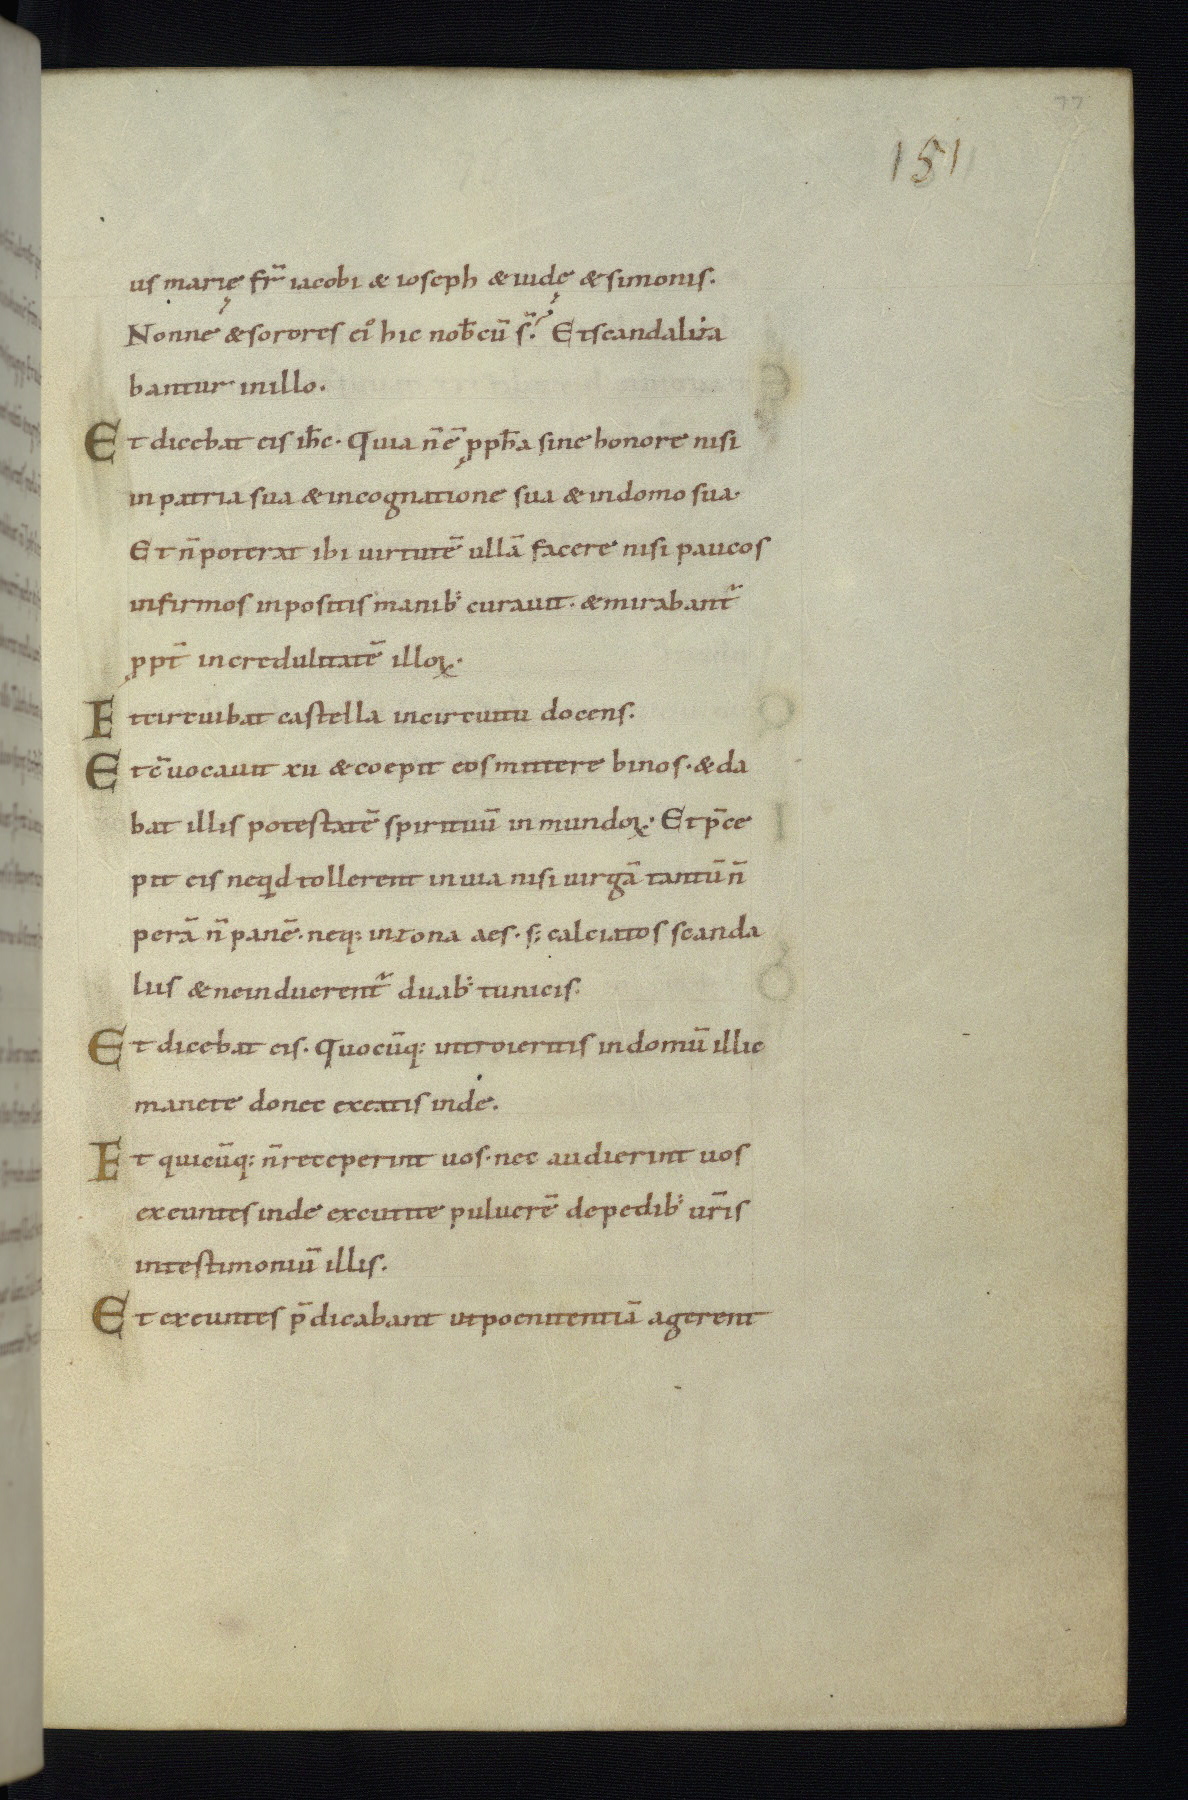 77
151
us marię fr̄ iacobi & ioseph & iudę & simonis.
Nonne & sorores ei᷒ hic nob̄ cū s̄. Et scandaliza
bantur in illo.
Et dicebat eis ih̄c. Quia n̄ ē ꝓph̄a sine honore nisi
in patria sua & in cognatione sua & in domo sua.
Et n̄ poterat ibi uirtutē ullā facere nisi paucos
infirmos inpositis manib; curauit. & mirabant᷑
ꝓpt̄ incredulitatē illoꝝ.
Et circuibat castella in circuitu docens.
Et c̄uocauit xii & coepit eos mittere binos. & da
bat illis potestatē spirituū inmundoꝝ. Et p̄ce
pit eis neqd tollerent in uia nisi uirgā tantū n̄
perā n̄ panē. neq; in zona aes. s; calciatos scanda
liis & ne induerent᷑ duab; tunicis.
Et dicebat eis. Quocūq; introieritis in domū illic
manete donec exeatis inde.
Et quicūq; n̄ receperint uos. nec audierint uos
exeuntes inde excutite puluerē de pedib; ur̄is
in testimoniū illis.
Et exeuntes p̄dicabant ut poenitentiā agerent